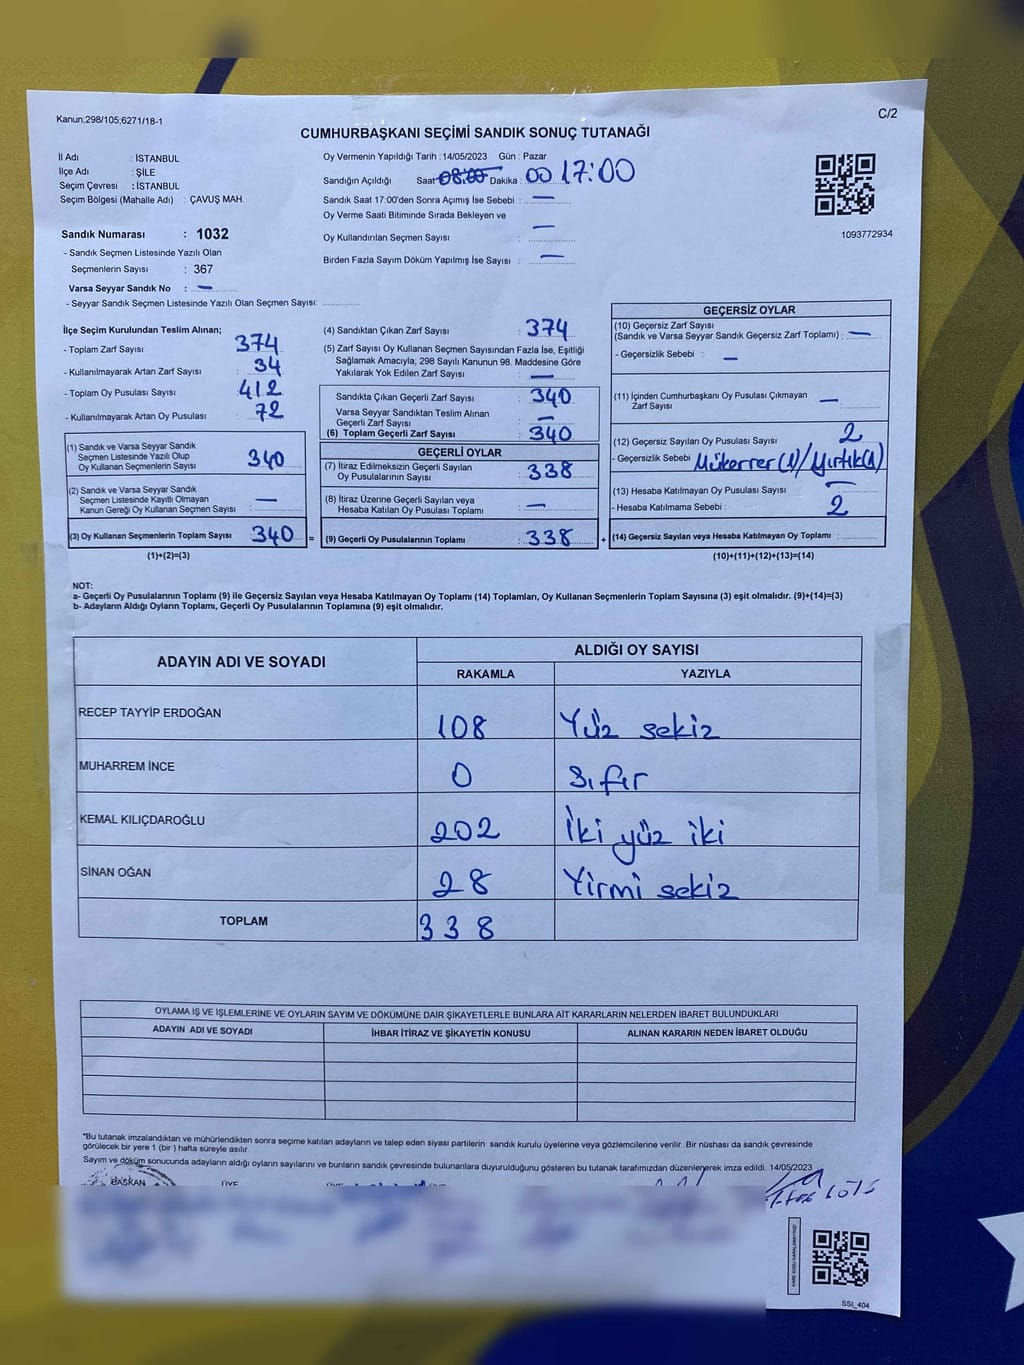 Kanun;298/105;6271/18-1
C/2
CUMHURBAŞKANI SEÇİMİ SANDIK SONUÇ TUTANAĞI
İl Adı : İSTANBUL
İlçe Adı : ŞİLE
Seçim Çevresi : İSTANBUL
Seçim Bölgesi (Mahalle Adı) : ÇAVUŞ MAH.
Oy Vermenin Yapıldığı Tarih : 14/05/2023 Gün : Pazar
Sandığın Açıldığı Saat 08:00 Dakika : 00 17:00
Sandık Saat 17:00'den Sonra Açımış İse Sebebi : —
Oy Verme Saati Bitiminde Sırada Bekleyen ve
Oy Kullandırılan Seçmen Sayısı : —
Birden Fazla Sayım Döküm Yapılmış İse Sayısı : —
1093772934
Sandık Numarası : 1032
- Sandık Seçmen Listesinde Yazılı Olan
Seçmenlerin Sayısı : 367
Varsa Seyyar Sandık No : —
- Seyyar Sandık Seçmen Listesinde Yazılı Olan Seçmen Sayısı:
İlçe Seçim Kurulundan Teslim Alınan;
- Toplam Zarf Sayısı : 374
- Kullanılmayarak Artan Zarf Sayısı : 34
- Toplam Oy Pusulası Sayısı : 412
- Kullanılmayarak Artan Oy Pusulası : 72
(1) Sandık ve Varsa Seyyar Sandık
Seçmen Listesinde Yazılı Olup
Oy Kullanan Seçmenlerin Sayısı : 340
(2) Sandık ve Varsa Seyyar Sandık
Seçmen Listesinde Kayıtlı Olmayan
Kanun Gereği Oy Kullanan Seçmen Sayısı : —
(3) Oy Kullanan Seçmenlerin Toplam Sayısı : 340 =
(1)+(2)=(3)
(4) Sandıktan Çıkan Zarf Sayısı : 374
(5) Zarf Sayısı Oy Kullanan Seçmen Sayısından Fazla İse, Eşitliği
Sağlamak Amacıyla; 298 Sayılı Kanunun 98. Maddesine Göre
Yakılarak Yok Edilen Zarf Sayısı : —
Sandıkta Çıkan Geçerli Zarf Sayısı : 340
Varsa Seyyar Sandıktan Teslim Alınan
Geçerli Zarf Sayısı : —
(6) Toplam Geçerli Zarf Sayısı : 340
GEÇERLİ OYLAR
(7) İtiraz Edilmeksizin Geçerli Sayılan
Oy Pusulalarının Sayısı : 338
(8) İtiraz Üzerine Geçerli Sayılan veya
Hesaba Katılan Oy Pusulası Toplamı : —
(9) Geçerli Oy Pusulalarının Toplamı : 338 +
GEÇERSİZ OYLAR
(10) Geçersiz Zarf Sayısı
(Sandık ve Varsa Seyyar Sandık Geçersiz Zarf Toplamı) : —
- Geçersizlik Sebebi : —
(11) İçinden Cumhurbaşkanı Oy Pusulası Çıkmayan
Zarf Sayısı : —
(12) Geçersiz Sayılan Oy Pusulası Sayısı : 2
- Geçersizlik Sebebi Mükerrer(1)/Yırtık(1)
(13) Hesaba Katılmayan Oy Pusulası Sayısı : —
- Hesaba Katılmama Sebebi : 2
(14) Geçersiz Sayılan veya Hesaba Katılmayan Oy Toplamı :
(10)+(11)+(12)+(13)=(14)
NOT:
a- Geçerli Oy Pusulalarının Toplamı (9) ile Geçersiz Sayılan veya Hesaba Katılmayan Oy Toplamı (14) Toplamları, Oy Kullanan Seçmenlerin Toplam Sayısına (3) eşit olmalıdır. (9)+(14)=(3)
b- Adayların Aldığı Oyların Toplamı, Geçerli Oy Pusulalarının Toplamına (9) eşit olmalıdır.
ADAYIN ADI VE SOYADI
ALDIĞI OY SAYISI
RAKAMLA YAZIYLA
RECEP TAYYİP ERDOĞAN 108 Yüz sekiz
MUHARREM İNCE 0 Sıfır
KEMAL KILIÇDAROĞLU 202 İki yüz iki
SİNAN OĞAN 28 Yirmi sekiz
TOPLAM 338
OYLAMA İŞ VE İŞLEMLERİNE VE OYLARIN SAYIM VE DÖKÜMÜNE DAİR ŞİKAYETLERLE BUNLARA AİT KARARLARIN NELERDEN İBARET BULUNDUKLARI
ADAYIN ADI VE SOYADI İHBAR İTİRAZ VE ŞİKAYETİN KONUSU ALINAN KARARIN NEDEN İBARET OLDUĞU
*Bu tutanak imzalandıktan ve mühürlendikten sonra seçime katılan adayların ve talep eden siyasi partilerin sandık kurulu üyelerine veya gözlemcilerine verilir. Bir nüshası da sandık çevresinde
görülecek bir yere 1 (bir) hafta süreyle asılır.
Sayım ve döküm sonucunda adayların aldığı oyların sayılarını ve bunların sandık çevresinde bulunanlara duyurulduğunu gösteren bu tutanak tarafımızdan düzenlenerek imza edildi. 14/05/2023
BAŞKAN ÜYE
SSI_404